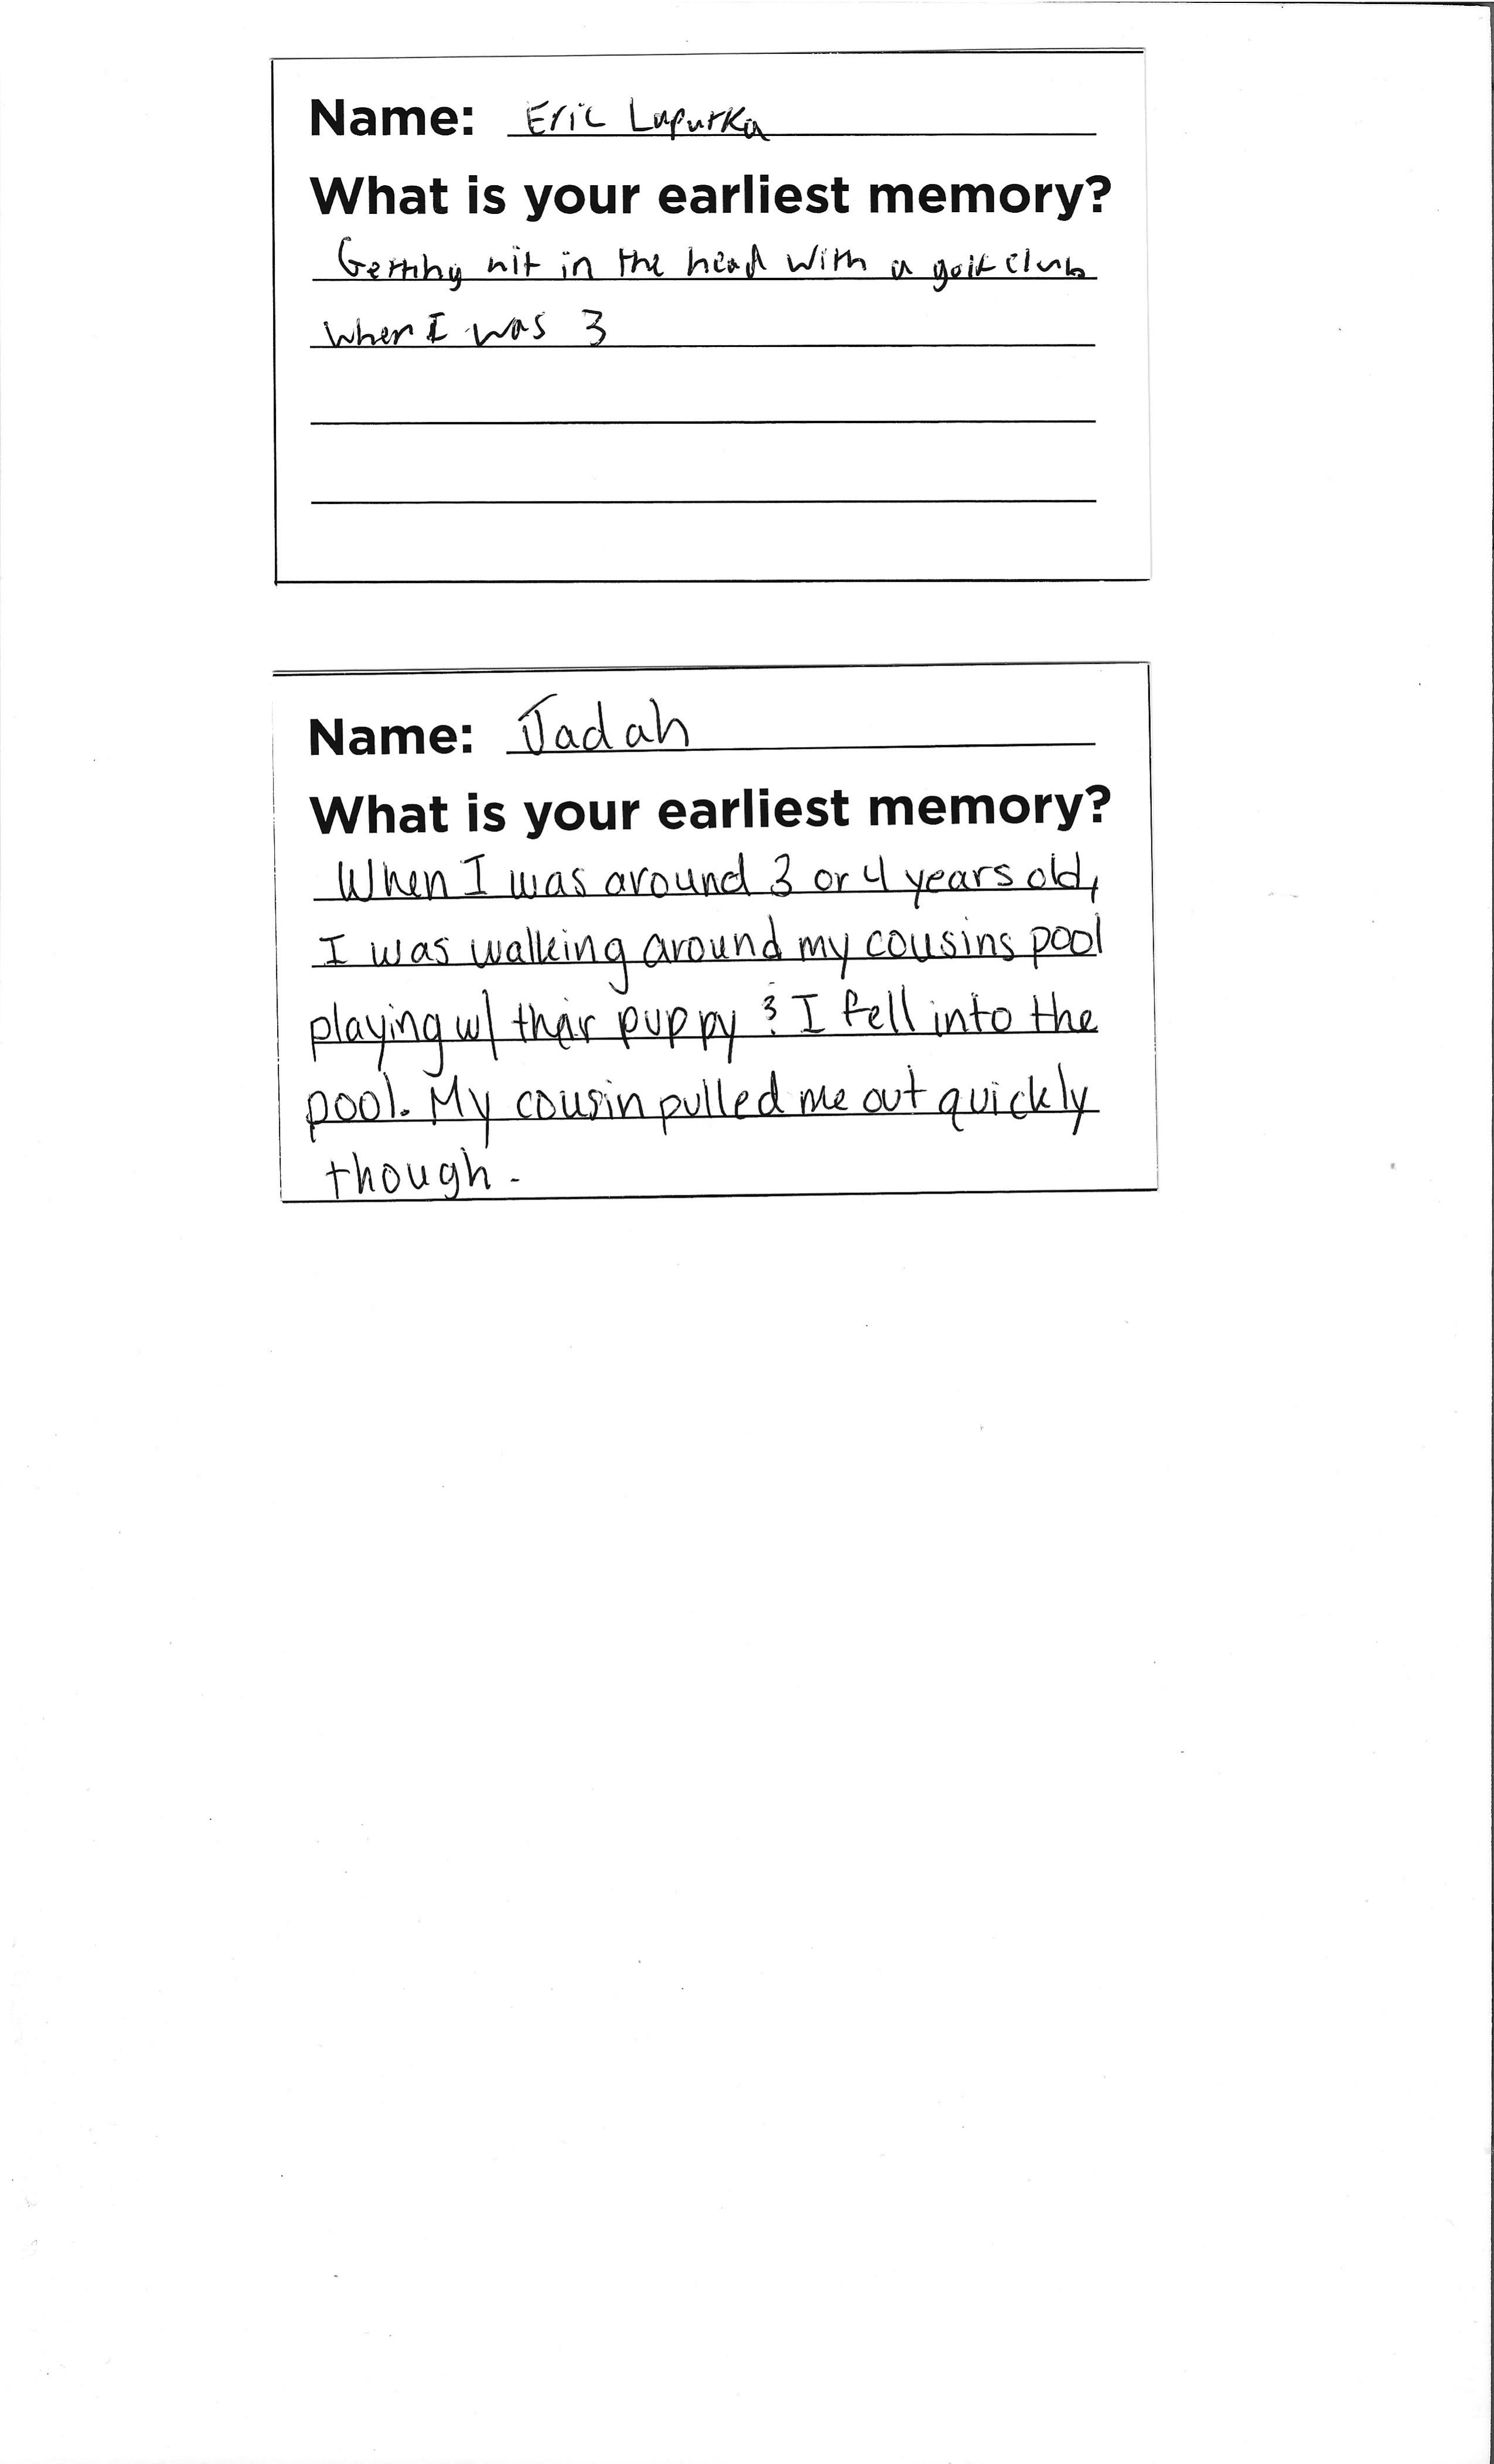 Name: Eric Lapurka
What is your earliest memory?
Getting hit in the head with a golf club
when I was 3
Name: Jadah
What is your earliest memory?
When I was around 3 or 4 years old,
I was walking around my cousins pool
playing w/ their puppy & I fell into the
pool. My cousin pulled me out quickly
though.